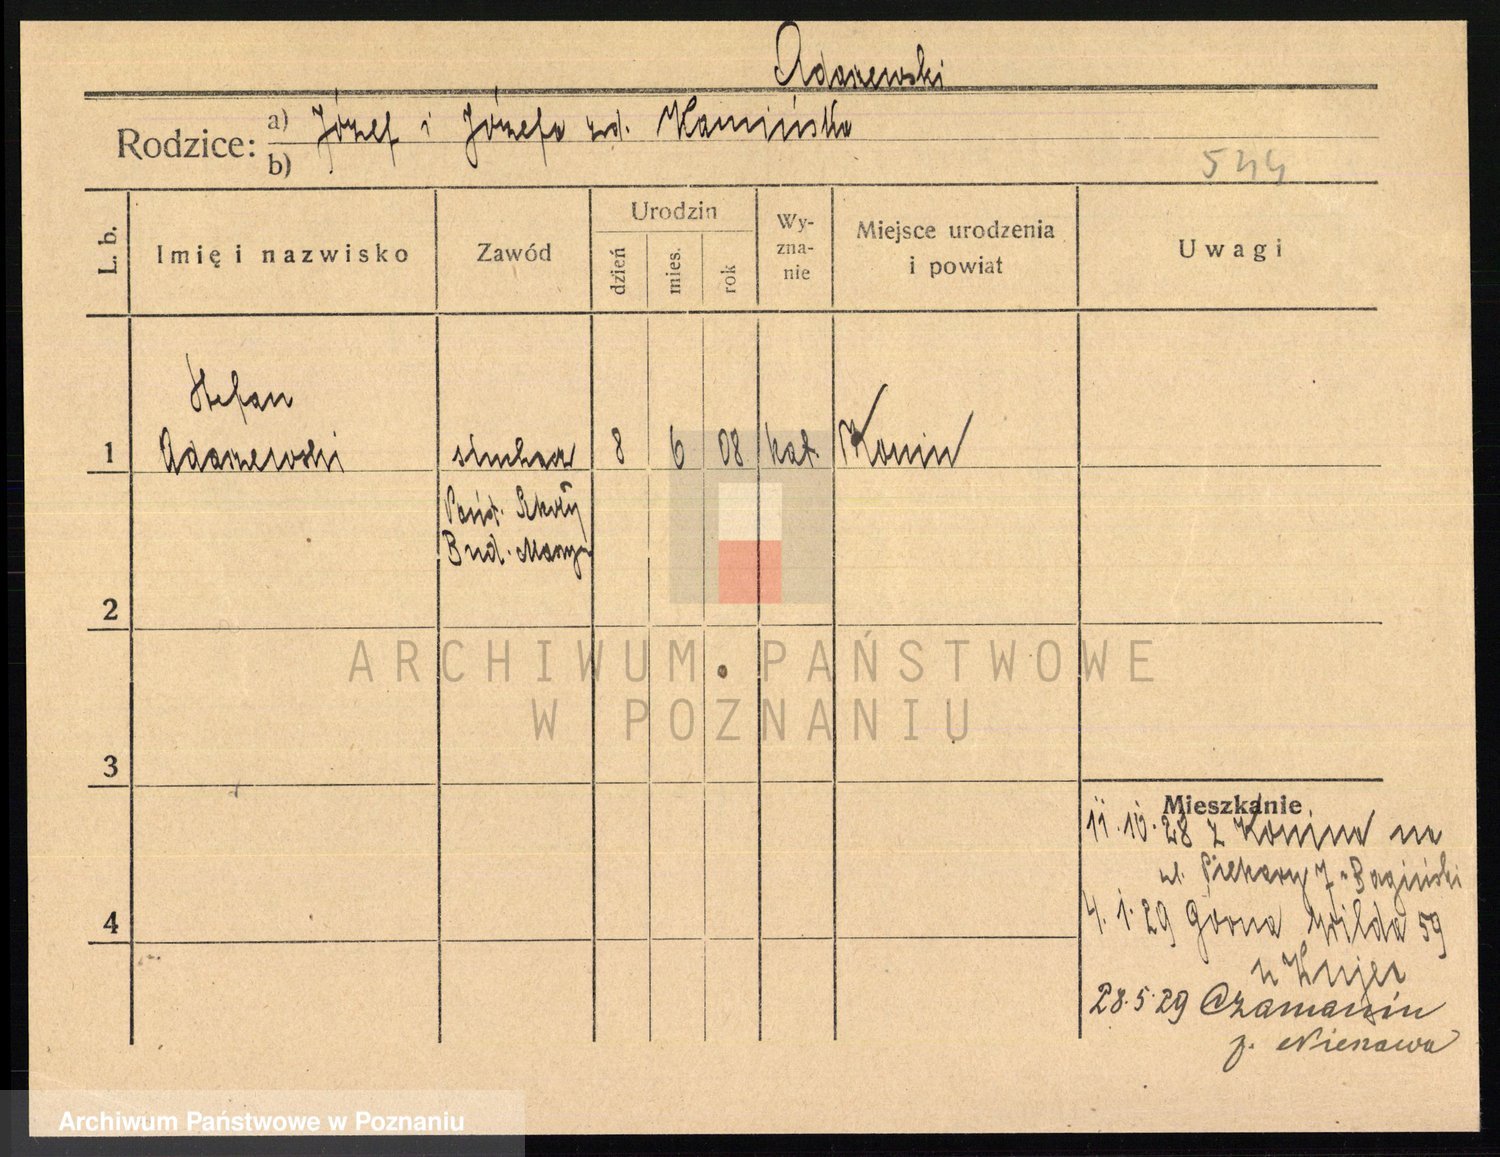 Adaszewski
Rodzice: a) Józef i Józefa zd. Kamińska
b)
544
L. b.
Imię i nazwisko
Zawód
Urodzin
dzień
mies.
rok
Wy-
zna-
nie
Miejsce urodzenia
i powiat
Uwagi
Stefan
1 Adaszewski słuchacz 8 6 08 kat. Konin
Państ. Szkoły
Bud. Maszyn
2
ARCHIWUM PAŃSTWOWE
W POZNANIU
3
Mieszkanie
11.10.28 z Konina na
ul. Piekary 7 Bagiński
4
4.1.29 Górna Wilda 59
u Kujer
28.5.29 Czamanin
p.
Archiwum Państwowe w Poznaniu